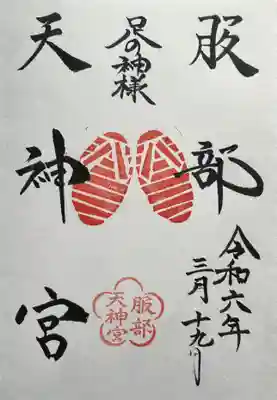 服部
天神宮
足の神様
令和六年
三月十九日
服部
天神宮